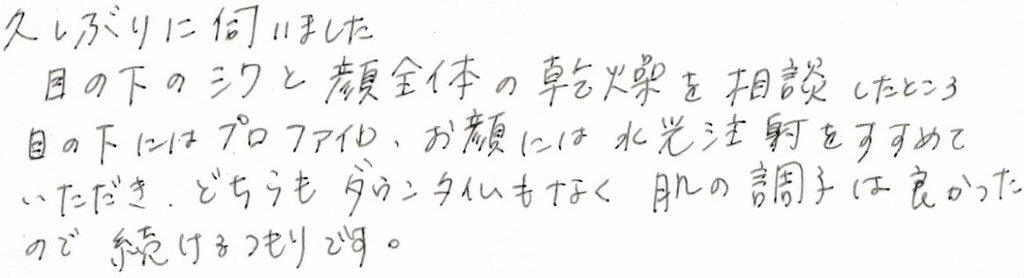 久しぶりに伺いました
目の下のシワと顔全体の乾燥を相談したところ
目の下にはプロファイロ、お顔には水光注射をすすめて
いただき、どちらもダウンタイムもなく 肌の調子は良かった
ので 続けるつもりです。